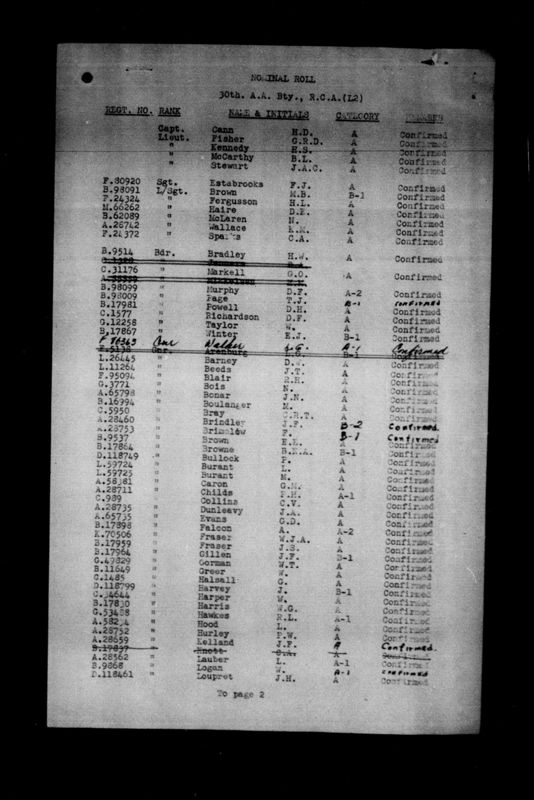 NOMINAL ROLL
30th. A.A. Bty., R.C.A.(L2)
REGT. NO. RANK NAME & INITIALS CATEGORY REMARKS
Capt. Cann H.D. A Confirmed
Lieut. Fisher G.R.D. A Confirmed
" Kennedy H.S. A Confirmed
" McCarthy B.L. A Confirmed
" Stewart J.A.C. A Confirmed
F.80920 Sgt. Estabrooks F.J. A Confirmed
B.98091 L/Sgt. Brown M.B. B-1 Confirmed
F.24324 " Fergusson H.L. A Confirmed
M.66262 " Haire D.E. A Confirmed
B.62089 " McLaren N. A Confirmed
A.28742 " Wallace A Confirmed
F.24372 " C.A. A Confirmed
B.9514 Bdr. Bradley H.W. A Confirmed
C.31176 " Markell G.O. A Confirmed
B.98099 " Murphy D.F. A-2 Confirmed
B.98009 " Page T.J. A-1 Confirmed
B.17981 " Powell D.H. A Confirmed
C.1577 " Richardson D.F. A Confirmed
G.12258 " Taylor W. A Confirmed
B.17867 " Winter E.J. B-1 Confirmed
F 96363 Gnr Walker L.G. A-1 Confirmed
Gnr. Arenburg B-1
L.26445 " Barney A Confirmed
L.11264 " Beeds J.T. A Confirmed
F.95094 " Blair R.H. A Confirmed
G.3771 " Bois N. A Confirmed
A.65798 " Bonar J.N. A Confirmed
B.16994 " Boulanger M. A Confirmed
C.5950 " Bray C.R.T. A Confirmed
A.28460 " Brindley J.F. B-2 Confirmed
A.28753 " F. B-1 Confirmed
B.9537 " Brown A Confirmed
B.17864 " Browne B.E.A. B-1 Confirmed
D.118749 " Bullock P. A Confirmed
L.59724 " Burant L. A Confirmed
L.59725 " Burant M. A Confirmed
A.58381 " Caron G.M. A Confirmed
A.28711 " Childs P.H. A-1 Confirmed
C.989 " Collins C.V. A Confirmed
A.28735 " Dunleavy J.A. A Confirmed
A.65735 " Evans G.D. A Confirmed
B.17898 " Falcon A. A-2 Confirmed
K.70506 " Fraser W.J.A. A Confirmed
B.17959 " Fraser J.S. A Confirmed
B.17964 " Gillen J.F. B-1 Confirmed
G.49829 " Gorman W.T. A Confirmed
B.11649 " Greer W. A Confirmed
C.1485 " Halsall G. A Confirmed
D.118799 " Harvey J. B-1 Confirmed
C.34644 " Harper W. A Confirmed
B.17830 " Harris W.G. A Confirmed
G.53488 " Hawkes R.L. A-1 Confirmed
" Hood L. A Confirmed
A.28752 " Hurley P.W. A Confirmed
A.28659 " Kelland J.F. A Confirmed
B.17837 " Knott A
A.28562 " Lauber L. A-1 Confirmed
B.9868 " Logan W. A-1 Confirmed
D.118461 " Loupret J.H. A Confirmed
To page 2